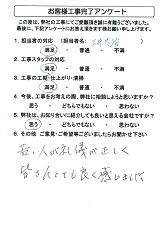 お客様工事完了アンケート
この度は、弊社の工事にてご愛顧頂き誠に有難うございました。
最後に、下記アンケートにお答え頂きます様お願い申し上げます。
1. 担当者の対応 (担当者名:
満足 ・ 普通 ・ 不満
2. 工事スタッフの対応
満足 ・ 普通 ・ 不満
3. 工事の工期・仕上がり・清掃
満足 ・ 普通 ・ 不満
4. 今後、工事をお考えの際、弊社に相談しようと思いますか?
思う ・ どちらでもない ・ 思わない
5. 弊社は、お知り合いに紹介しても良いと思える会社ですか?
思う ・ どちらでもない ・ 思わない
6. その他 ご意見・ご希望等ございましたらお聞かせ下さい
若い人が礼儀が正しく
皆さんとても良く感じました